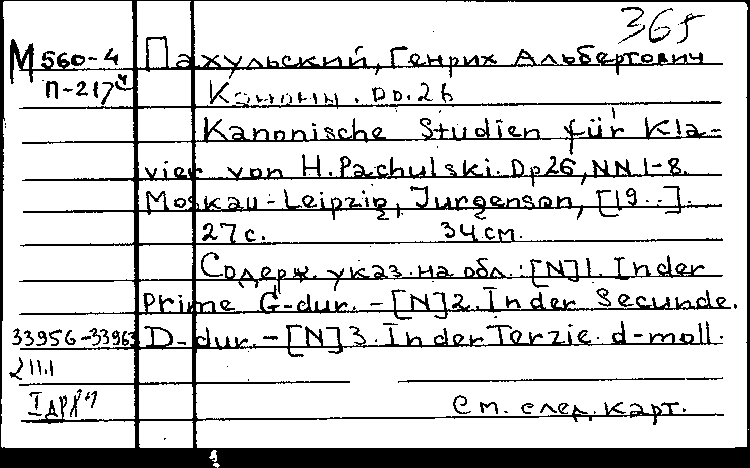 365
М 560-4 Пахульский, Генрих Альбертович
П-217ч
Каноны. Op. 26
Kanonische Studien für Kla-
vier von H. Pachulski. Op 26, NN 1-8.
Moskau-Leipzig, Jurgenson, [19..].
27 с. 34 см.
Содерж. указ. на обл.: [N] 1. In der
Prime G-dur. - [N] 2. In der Secunde.
33956-33963 D-dur. - [N] 3. In der Terzie. d-moll.
См. след. карт.